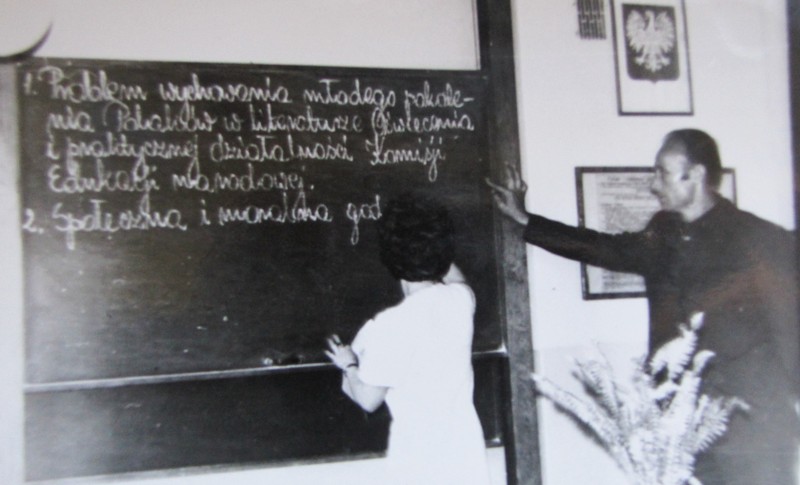 1. Problem wychowania młodego pokole-
nia Polaków w literaturze Oświecenia
i praktycznej działalności Komisji
Edukacji narodowej.
2. Społeczna i moralna god